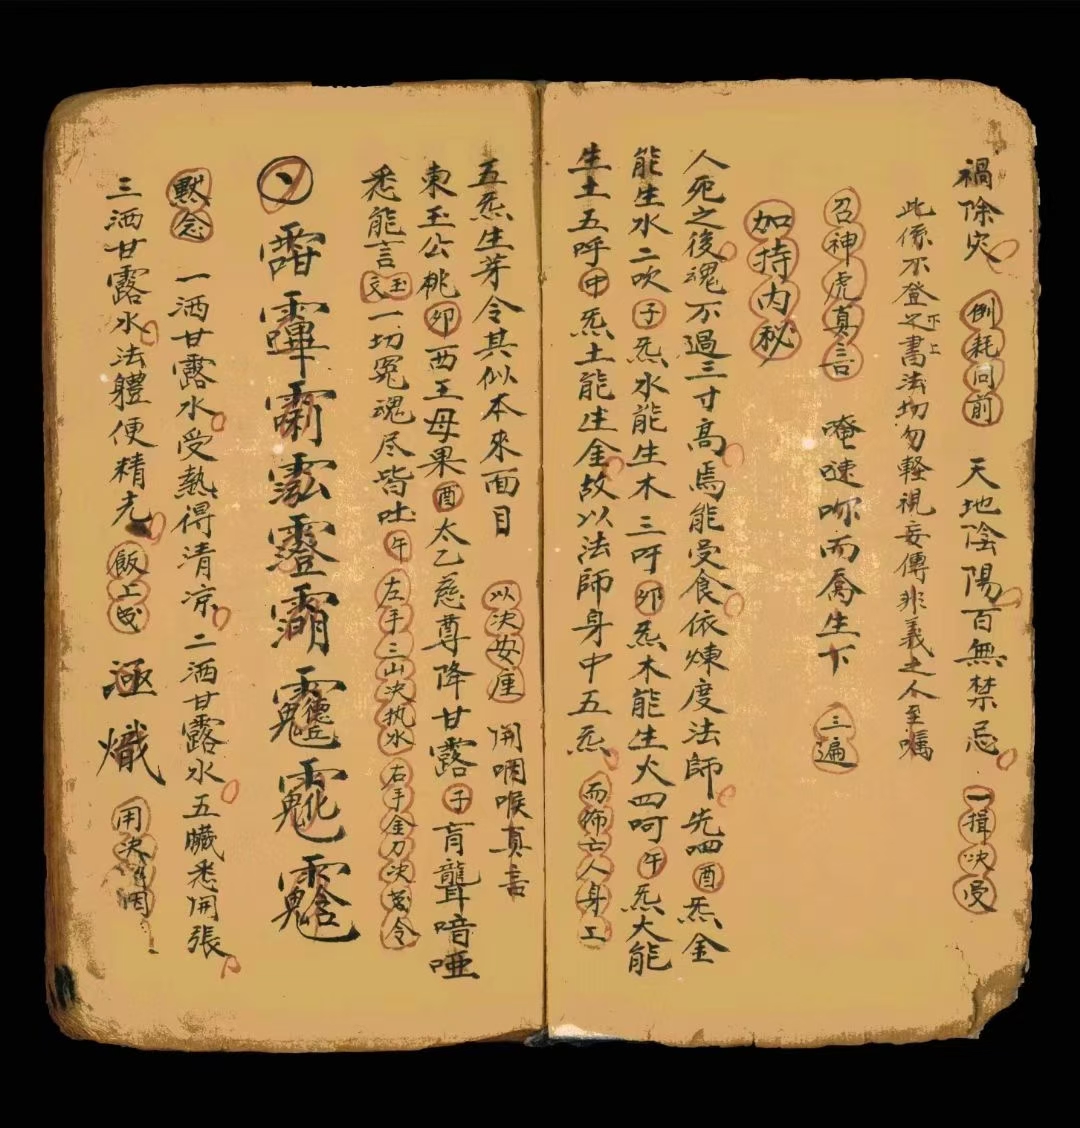 禍除灾 例耗同前 天地陰陽百無禁忌 一揖決受
此係不登之書法切勿輕視妄傳非義之人至嘱
下上
召神虎真言 唵 而 生下 三遍
加持内秘
人死之後魂不過三寸高焉能受食依煉度法師先呬酉炁金
能生水二吹子炁水能生木三吁卯炁木能生火四呵午炁火能
生土五呼中炁土能生金故以法師身中五炁而佈亡人身上
五炁生芽令其似本來面目 以決安座 開咽喉真言
東玉公桃卯西王母果酉太乙慈尊降甘露子盲聾喑啞
悉能言玉文一切冤魂尽皆吐午左手三山決执水右手金刀決 令
靈
默念 一洒甘露水受熱得清凉二洒甘露水五臟悉開張
三洒甘露水法體便精光飯上 用決 咽